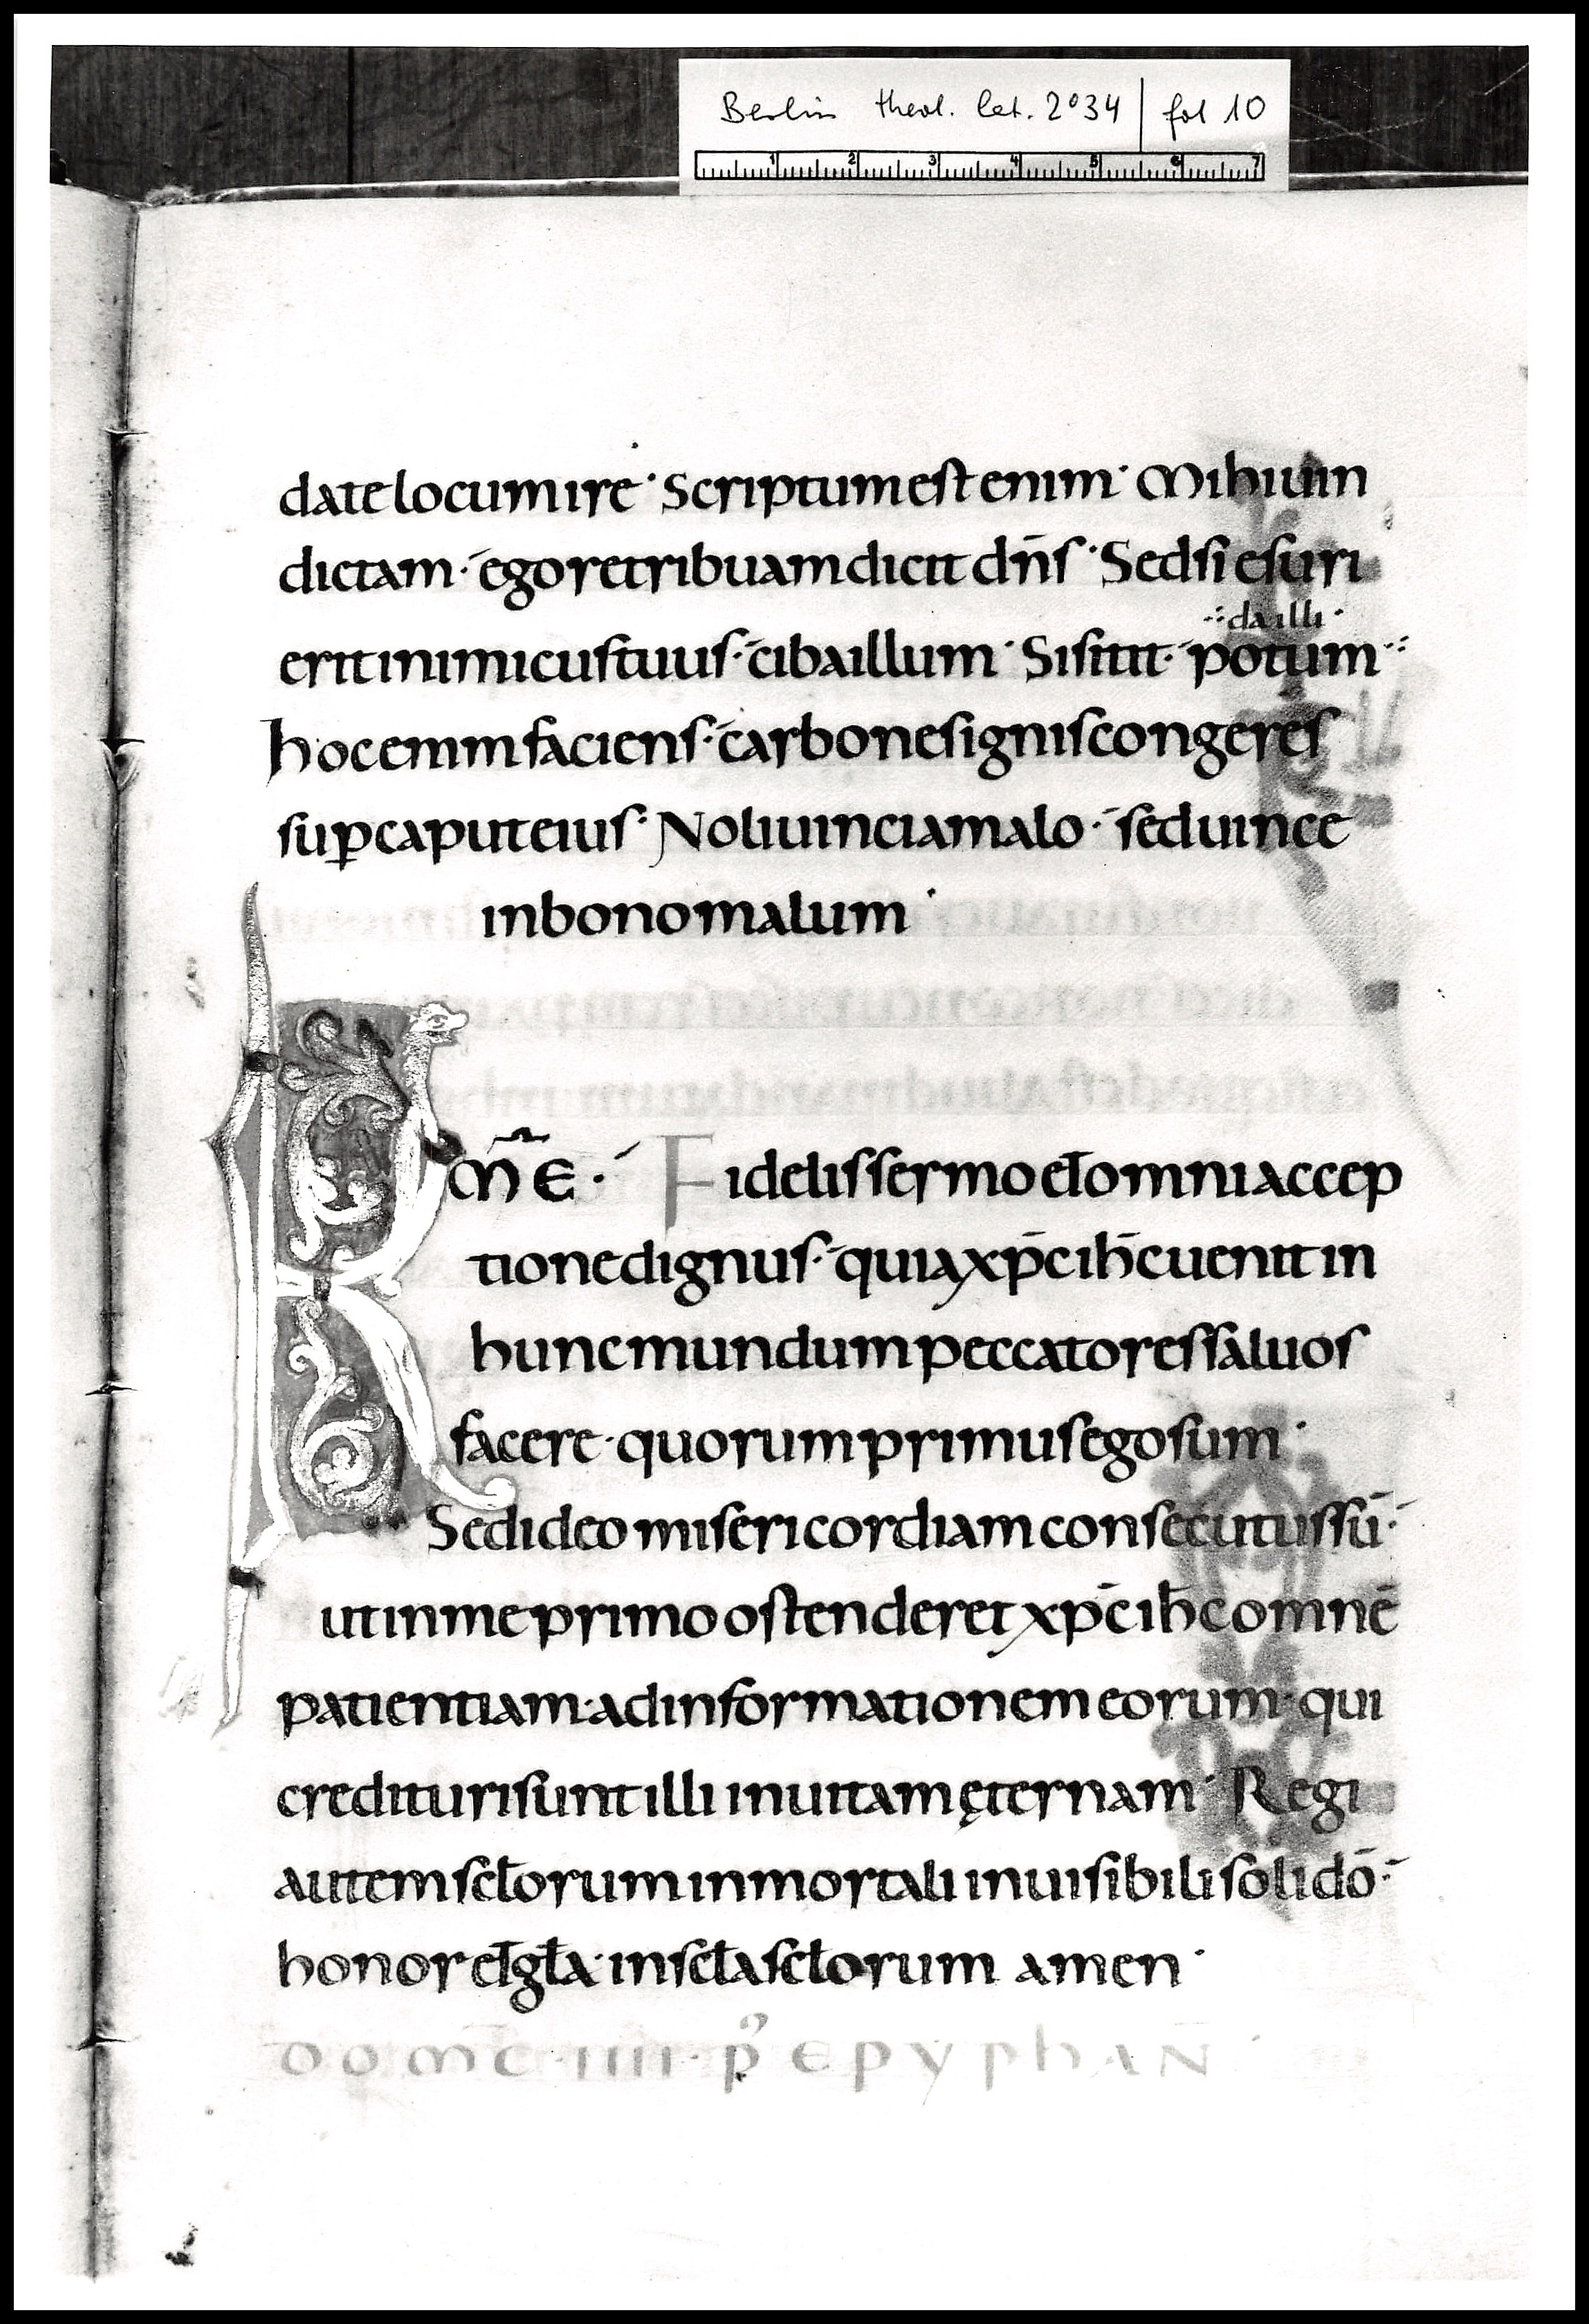 Berlin theol. lat. 2° 34 | fol 10
1 2 3 4 5 6 7
date locum ire · Scriptum est enim · Mihi uin
dictam · ego retribuam dicit dn̄s · Sed si esuri
erit inimicus tuus · ciba illum · Si sitit · potum
da illi
hoc enim faciens · carbones ignis congeres
sup̲ caput eius · Noli uinci a malo · sed uince
in bono malum ·
R
M̄E · Fidelis sermo et̄ omni accep
tione dignus · quia xp̄c ih̄c uenit in
hunc mundum peccatores saluos
facere · quorum primus ego sum ·
Sed ideo misericordiam consecutus sū ·
ut in me primo ostenderet xp̄c ih̄c omnē
patientiam · ad informationem eorum · qui
credituri sunt illi in uitam ęternam · Regi
autem scl̄orum inmortali inuisibili soli dō ·
honor et̄ gl̄a · in scl̄a scl̄orum amen ·
DOM̄C · IIII · p̾ EPYPHAN̄ ·